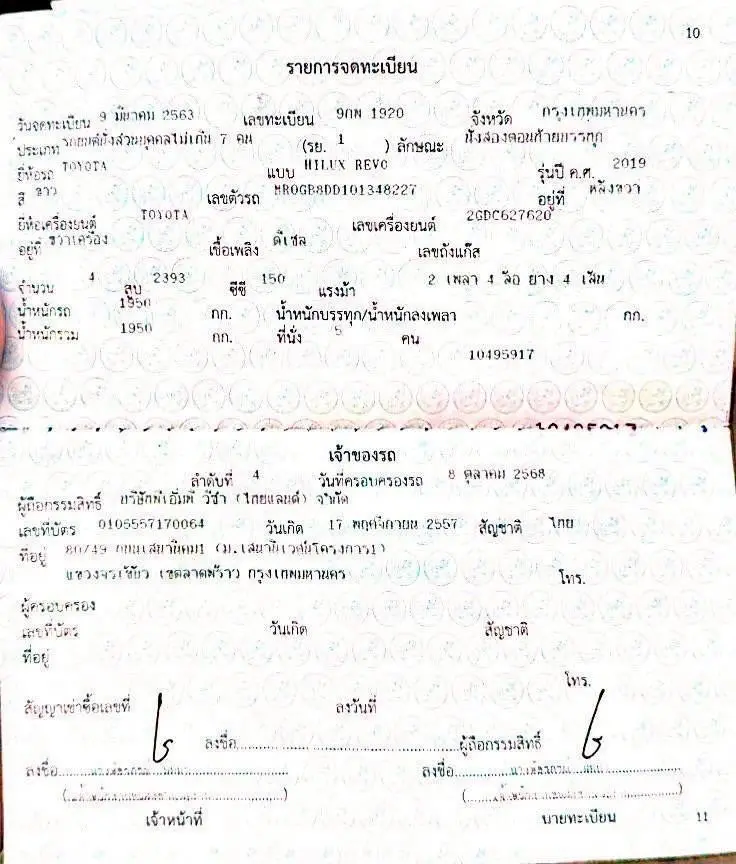 10
รายการจดทะเบียน
วันจดทะเบียน 9 มีนาคม 2563 เลขทะเบียน 9กพ 1920 จังหวัด กรุงเทพมหานคร
ประเภท รถยนต์นั่งส่วนบุคคลไม่เกิน 7 คน (รย. 1 ) ลักษณะ นั่งสองตอนท้ายบรรทุก
ยี่ห้อรถ TOYOTA แบบ HILUX REVO รุ่นปี ค.ศ. 2019
สี ขาว เลขตัวรถ MR0GB8DD101348227 อยู่ที่ หลังขวา
ยี่ห้อเครื่องยนต์ TOYOTA เลขเครื่องยนต์ 2GDC627620
อยู่ที่ ขวาเครื่อง เชื้อเพลิง ดีเซล เลขถังแก๊ส
จำนวน 4 สูบ 2393 ซีซี 150 แรงม้า 2 เพลา 4 ล้อ ยาง 4 เส้น
น้ำหนักรถ 1950 กก. น้ำหนักบรรทุก/น้ำหนักลงเพลา กก.
น้ำหนักรวม 1950 กก. ที่นั่ง 5 คน
10495917
เจ้าของรถ
ลำดับที่ 4 วันที่ครอบครองรถ 8 ตุลาคม 2568
ผู้ถือกรรมสิทธิ์ บริษัทพีเอ็มพี วีซ่า (ไทยแลนด์) จำกัด
เลขที่บัตร 0105557170064 วันเกิด 17 พฤศจิกายน 2557 สัญชาติ ไทย
ที่อยู่ 80/49 ถนนเสนานิคม1 (ม.เสนานิเวศน์โครงการ1)
แขวงจรเข้บัว เขตลาดพร้าว กรุงเทพมหานคร โทร.
ผู้ครอบครอง
เลขที่บัตร วันเกิด สัญชาติ
ที่อยู่
โทร.
สัญญาเช่าซื้อเลขที่ ลงวันที่
ลงชื่อ ผู้ถือกรรมสิทธิ์
ลงชื่อ ลงชื่อ
เจ้าหน้าที่ นายทะเบียน
11